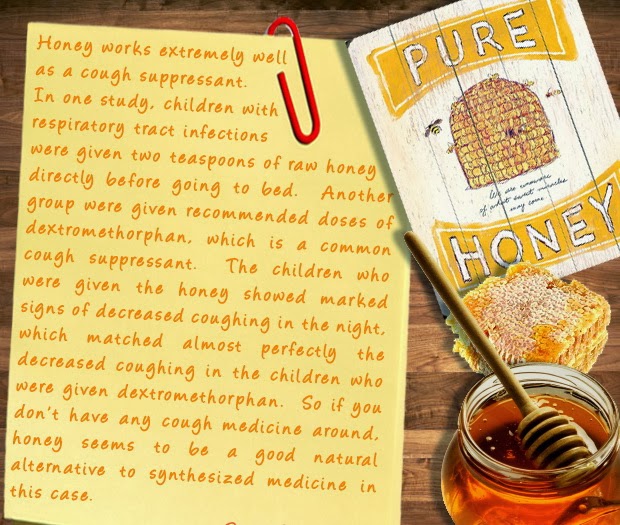 Honey works extremely well
as a cough suppressant.
In one study, children with
respiratory tract infections
were given two teaspoons of raw honey
directly before going to bed. Another
group were given recommended doses of
dextromethorphan, which is a common
cough suppressant. The children who
were given the honey showed marked
signs of decreased coughing in the night,
which matched almost perfectly the
decreased coughing in the children who
were given dextromethorphan. So if you
don't have any cough medicine around,
honey seems to be a good natural
alternative to synthesized medicine in
this case.
PURE
We are unaware
of what sweet miracles
may come
HONEY